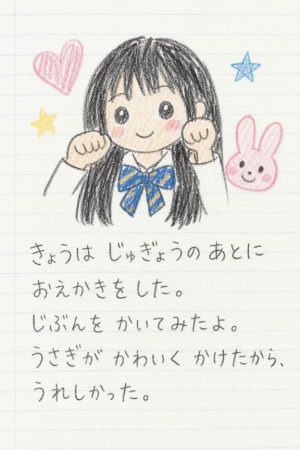 きょうは じゅぎょうの あとに
おえかきを した。
じぶんを かいてみたよ。
うさぎが かわいく かけたから、
うれしかった。